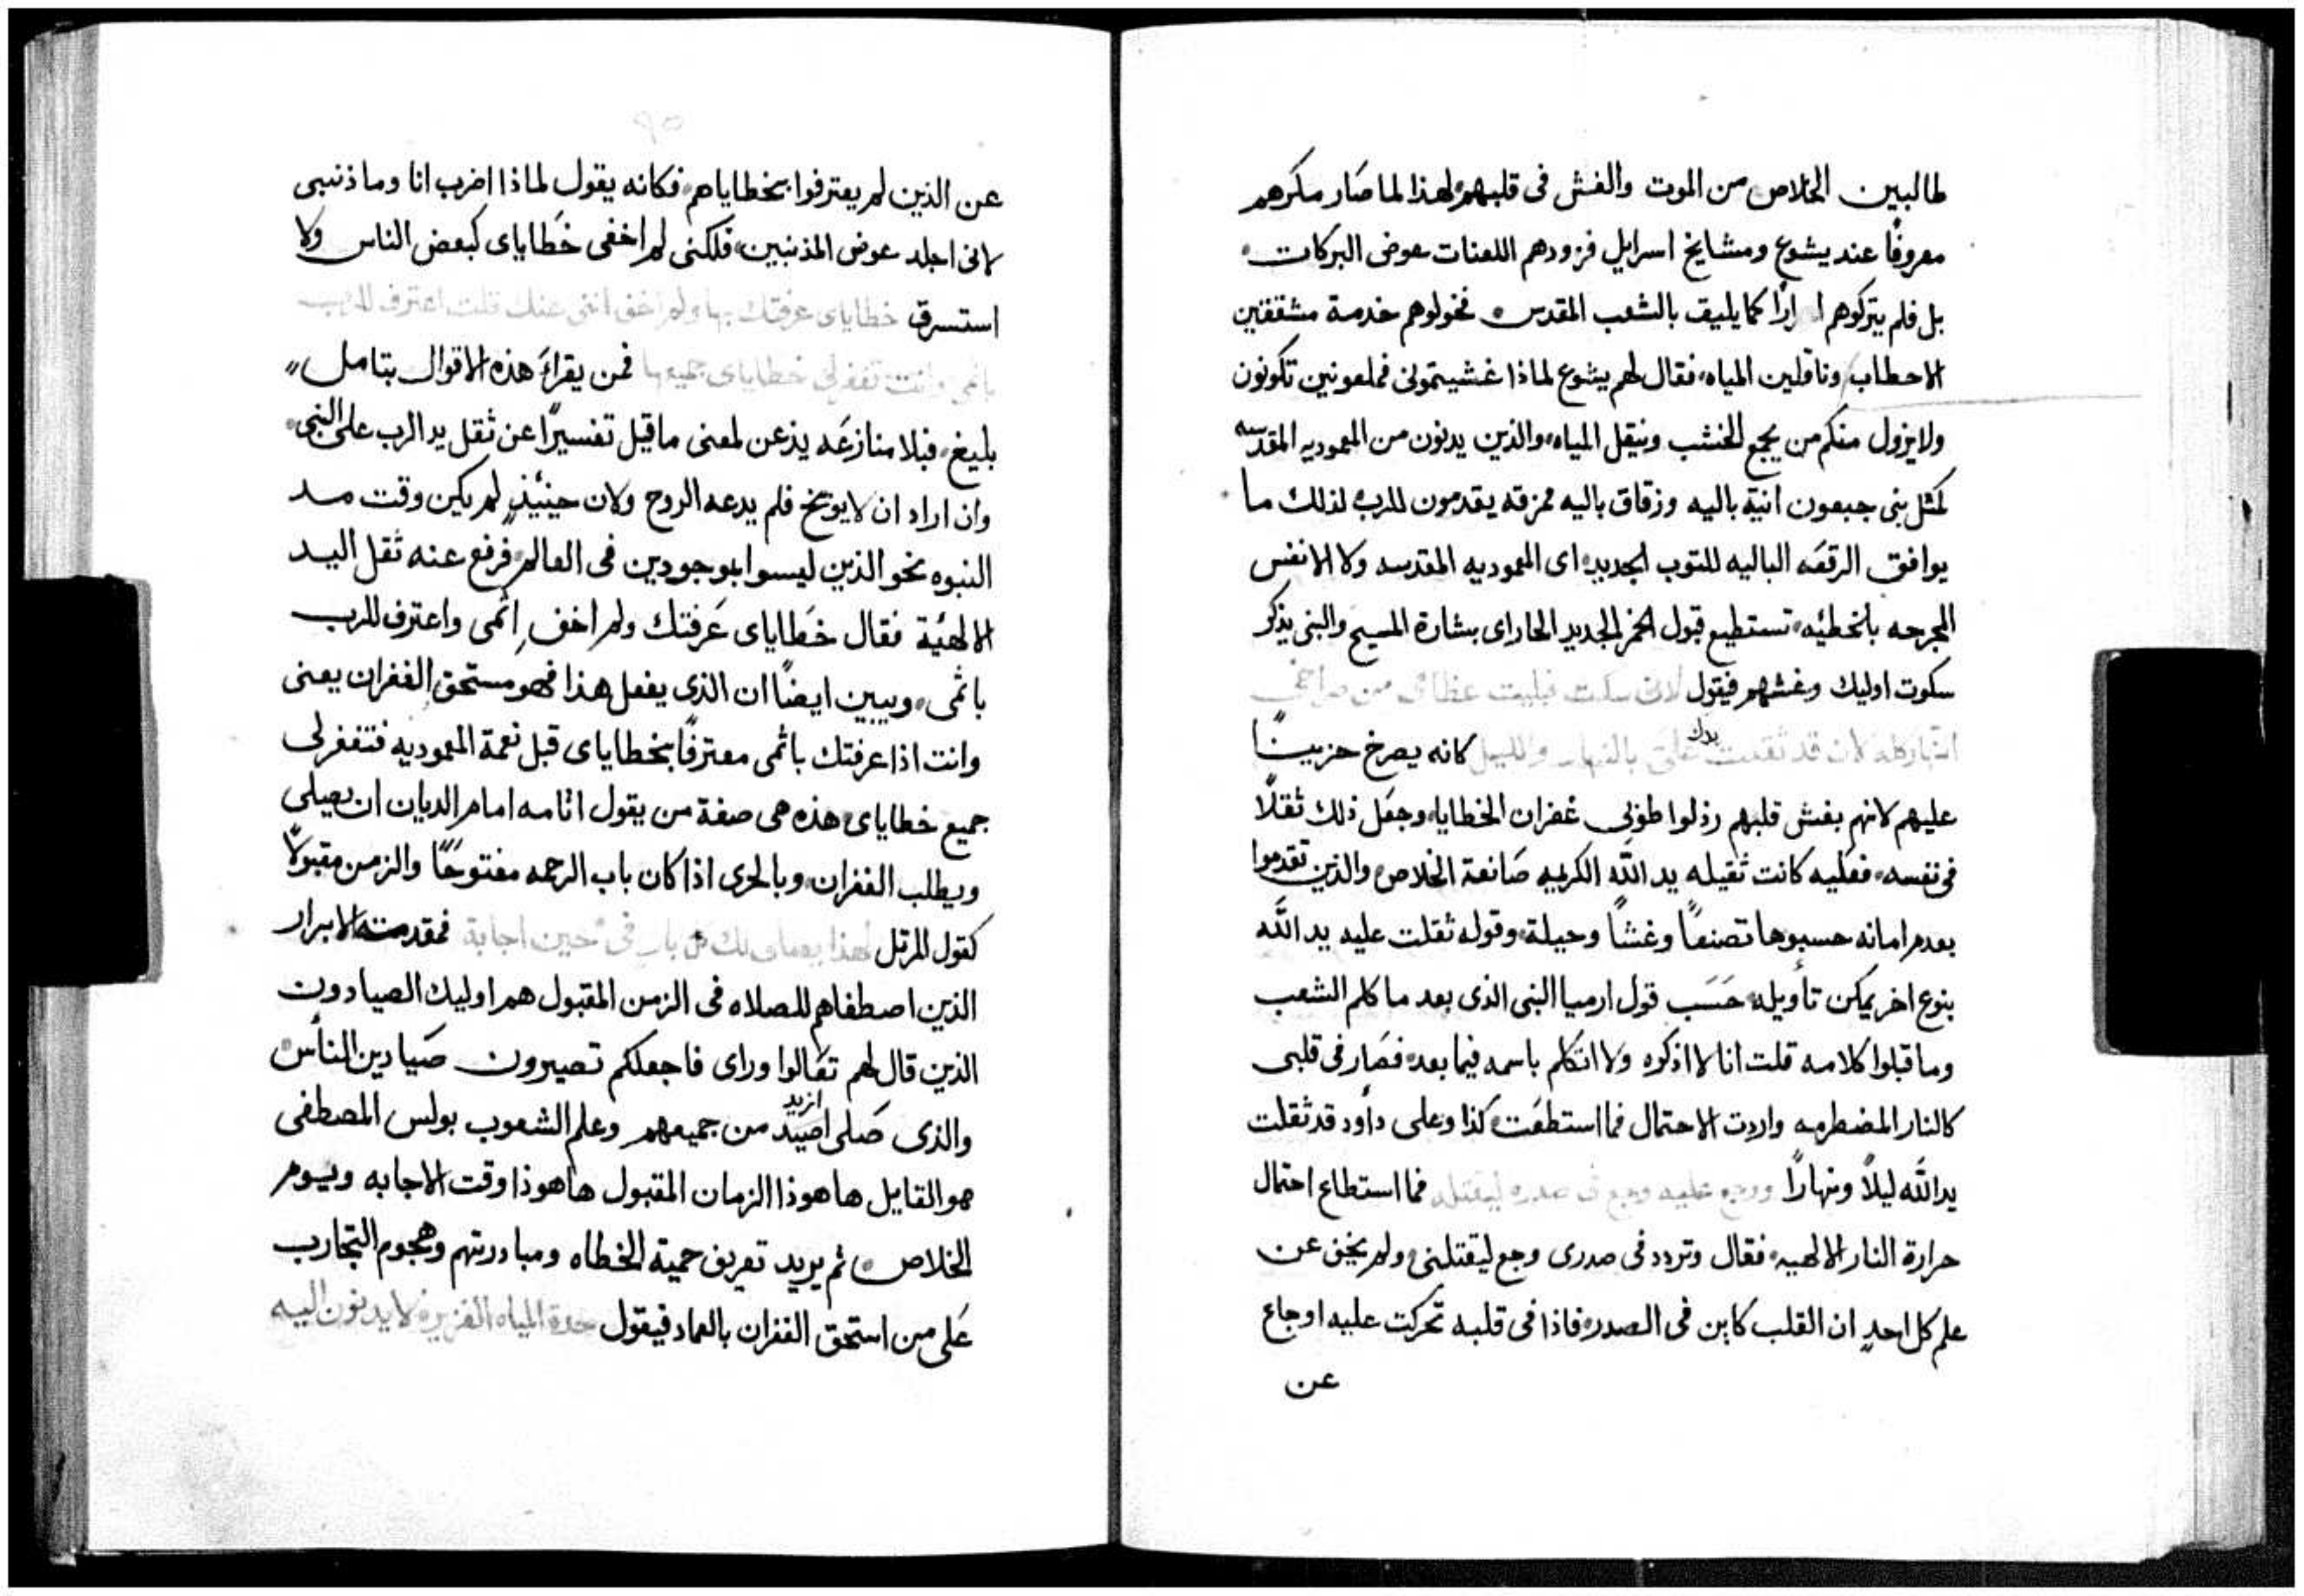 طالبين الخلاص من الموت والغش فى قلبهم لهذا لما صَار مكرهم
معروفًا عند يشوع ومشايخ اسرايل فزودهم اللعنات عوض البركات
بل فلم يتركوهم كما يليق بالشعب المقدس فخولوهم خدمة مشققين
الاحطاب وناقلين المياه فقال لهم يشوع لماذا غشيتمونى فملعونين تكونون
ولا يزول منكم من يجمع الخشب وينقل المياه والذين يدنون من المعموديه المقدسه
كمثل بنى جبعون انية باليه وزقاق باليه ممزقه يقدمون للرب لذلك ما
يوافق الرقعَه الباليه للتوب الجديد اى المعموديه المقدسه ولا الانفس
المجرحه بالخطئيه تستطيع قبول الخمر الجديد الحار اى بشارة المسيح والنبى يذكر
سكوت اوليك وغشهم فيقول لانى سكت فبليت عظامى من صراخى
النهار كله لان قد ثقلت علىّ يدك بالنهار والليل كانه يصرخ حزينًا
عليهم لانهم بغش قلبهم رذلوا طوبى غفران الخطايا وجعَل ذلك ثقلًا
فى نفسه فعليه كانت ثقيله يد الله الكريمه صَانعة الخلاص والذين تقدموا
بعدم امانه حسبوها تصنعًا وغشًا وحيلة وقوله ثقلت عليه يد الله
بنوع اخر يمكن تأويله حَسَب قول ارميا النبى الذى بعد ما كلم الشعب
وما قبلوا كلامه قلت انا لا اذكره ولا اتكلم باسمه فيما بعد فصَار فى قلبى
كالنار المضطرمه واردت الاحتمال فما استطعَت كذا وعلى داود قد ثقلت
يد الله ليلًا ونهارًا ورجع عليه وجع فى صدره ليقتله فما استطاع احتمال
حرارة النار الالهيه فقال وتردد فى صدرى وجع ليقتلنى ولم يخف عن
علم كل احدٍ ان القلب كاين فى الصدر فاذا فى قلبه تحركت عليه اوجاع
عن
٩٥
عن الذين لم يعترفوا بخطاياهم فكانه يقول لماذا اضرب انا وما ذنبى
لانى اجلد عوض المذنبين فلكنى لم اخفى خَطاياى كبعض الناس ولا
استسرق خطاياى عرفتك بها ولم اخف اثمى عنك قلت اعترف للرب
باثمى وانت تغفر لى خطاياى جميعها فمن يقراءَ هذه الاقوال بتامل
بليغ فبلا منازعَه يذعن لمعنى ما قيل تفسيرًا عن ثقل يد الرب على النبى
وان اراد ان لا يوبخ فلم يدعه الروح ولان حينيئذٍ لم يكن وقت مد
النبوه نحو الذين ليسوا بموجودين فى العالم فرفع عنه ثقل اليد
الالهيَة فقال خَطاياى عَرفتك ولم اخفِ اثمى واعترف للرب
باثمى ويبين ايضًا ان الذى يفعل هذا فهو مستحق الغفران يعنى
وانت اذا عرفتك باثمى معترفًا بخطاياى قبل نعمة المعموديه فتغفر لى
جميع خطاياى هذه هى صفة من يقول اثامه امام الديان ان يصلى
ويطلب الغفران وبالحرى اذا كان باب الرحمه مفتوحًا والزمن مقبولًا
كقول المرتل لهذا يصلى لك كل بار فى حين اجابة فمقدمة الابرار
الذين اصطفاهم للصلاه فى الزمن المقبول هم اوليك الصيادون
الذين قال لهم تعَالوا وراى فاجعلكم تصيرون صَيادين الناس
والذى صَلى ازيد من جميعهم وعلم الشعوب بولس المصطفى
هو القايل ها هوذا الزمان المقبول ها هوذا وقت الاجابه ويوم
الخلاص ثم يريد تعريف حمية الخطاه ومبادرتهم وهجوم التجارب
عَلى من استحق الغفران بالعماد فيقول حدة المياه الغزيره لا يدنون اليه